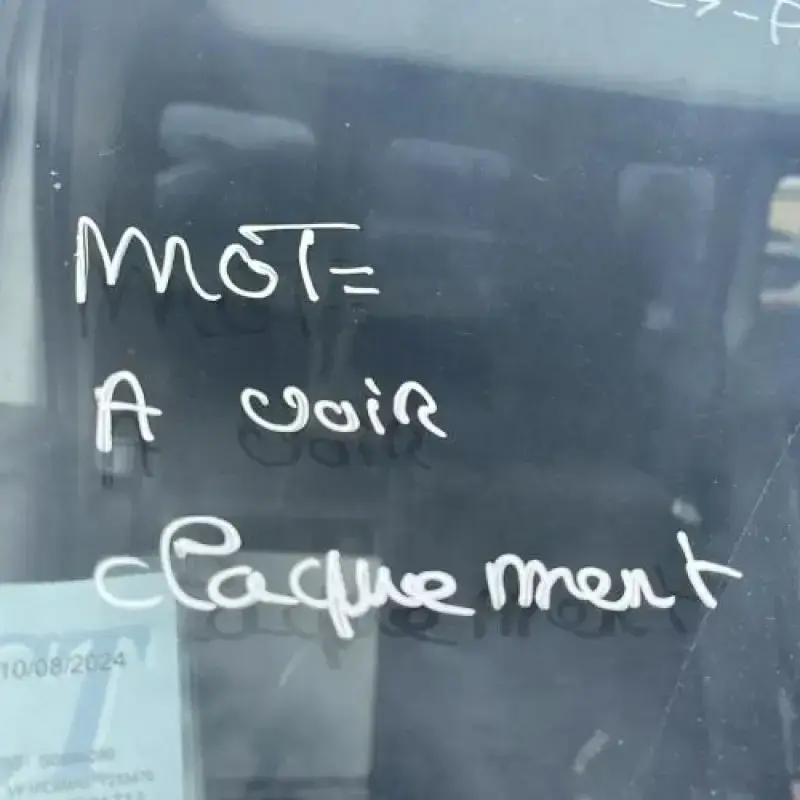 MOT=
A voir
claquement
10/08/2024